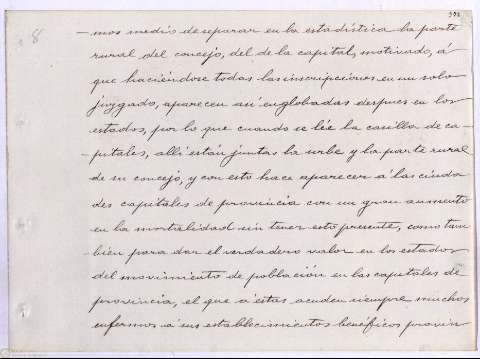 8
- mos medio de separar en la estadística la parte
rural, del concejo, del de la capital, motivado, á
que haciéndose todas las inscripciones en un solo
juzgado, aparecen así englobadas despues en los
estados, por lo que cuando se lée la casilla de ca-
-pitales, allí están juntas la urbe y la parte rural
de su concejo, y con esto hace aparecer á las ciuda
des capitales de provincia con un gran aumento
en la mortalidad sin tener esto presente, como tam
bién para dar el verdadero valor en los estados
del movimiento de población en las capitales de
provincia, el que a éstas, acuden siempre muchos
enfermos á sus establecimientos benéficos provin